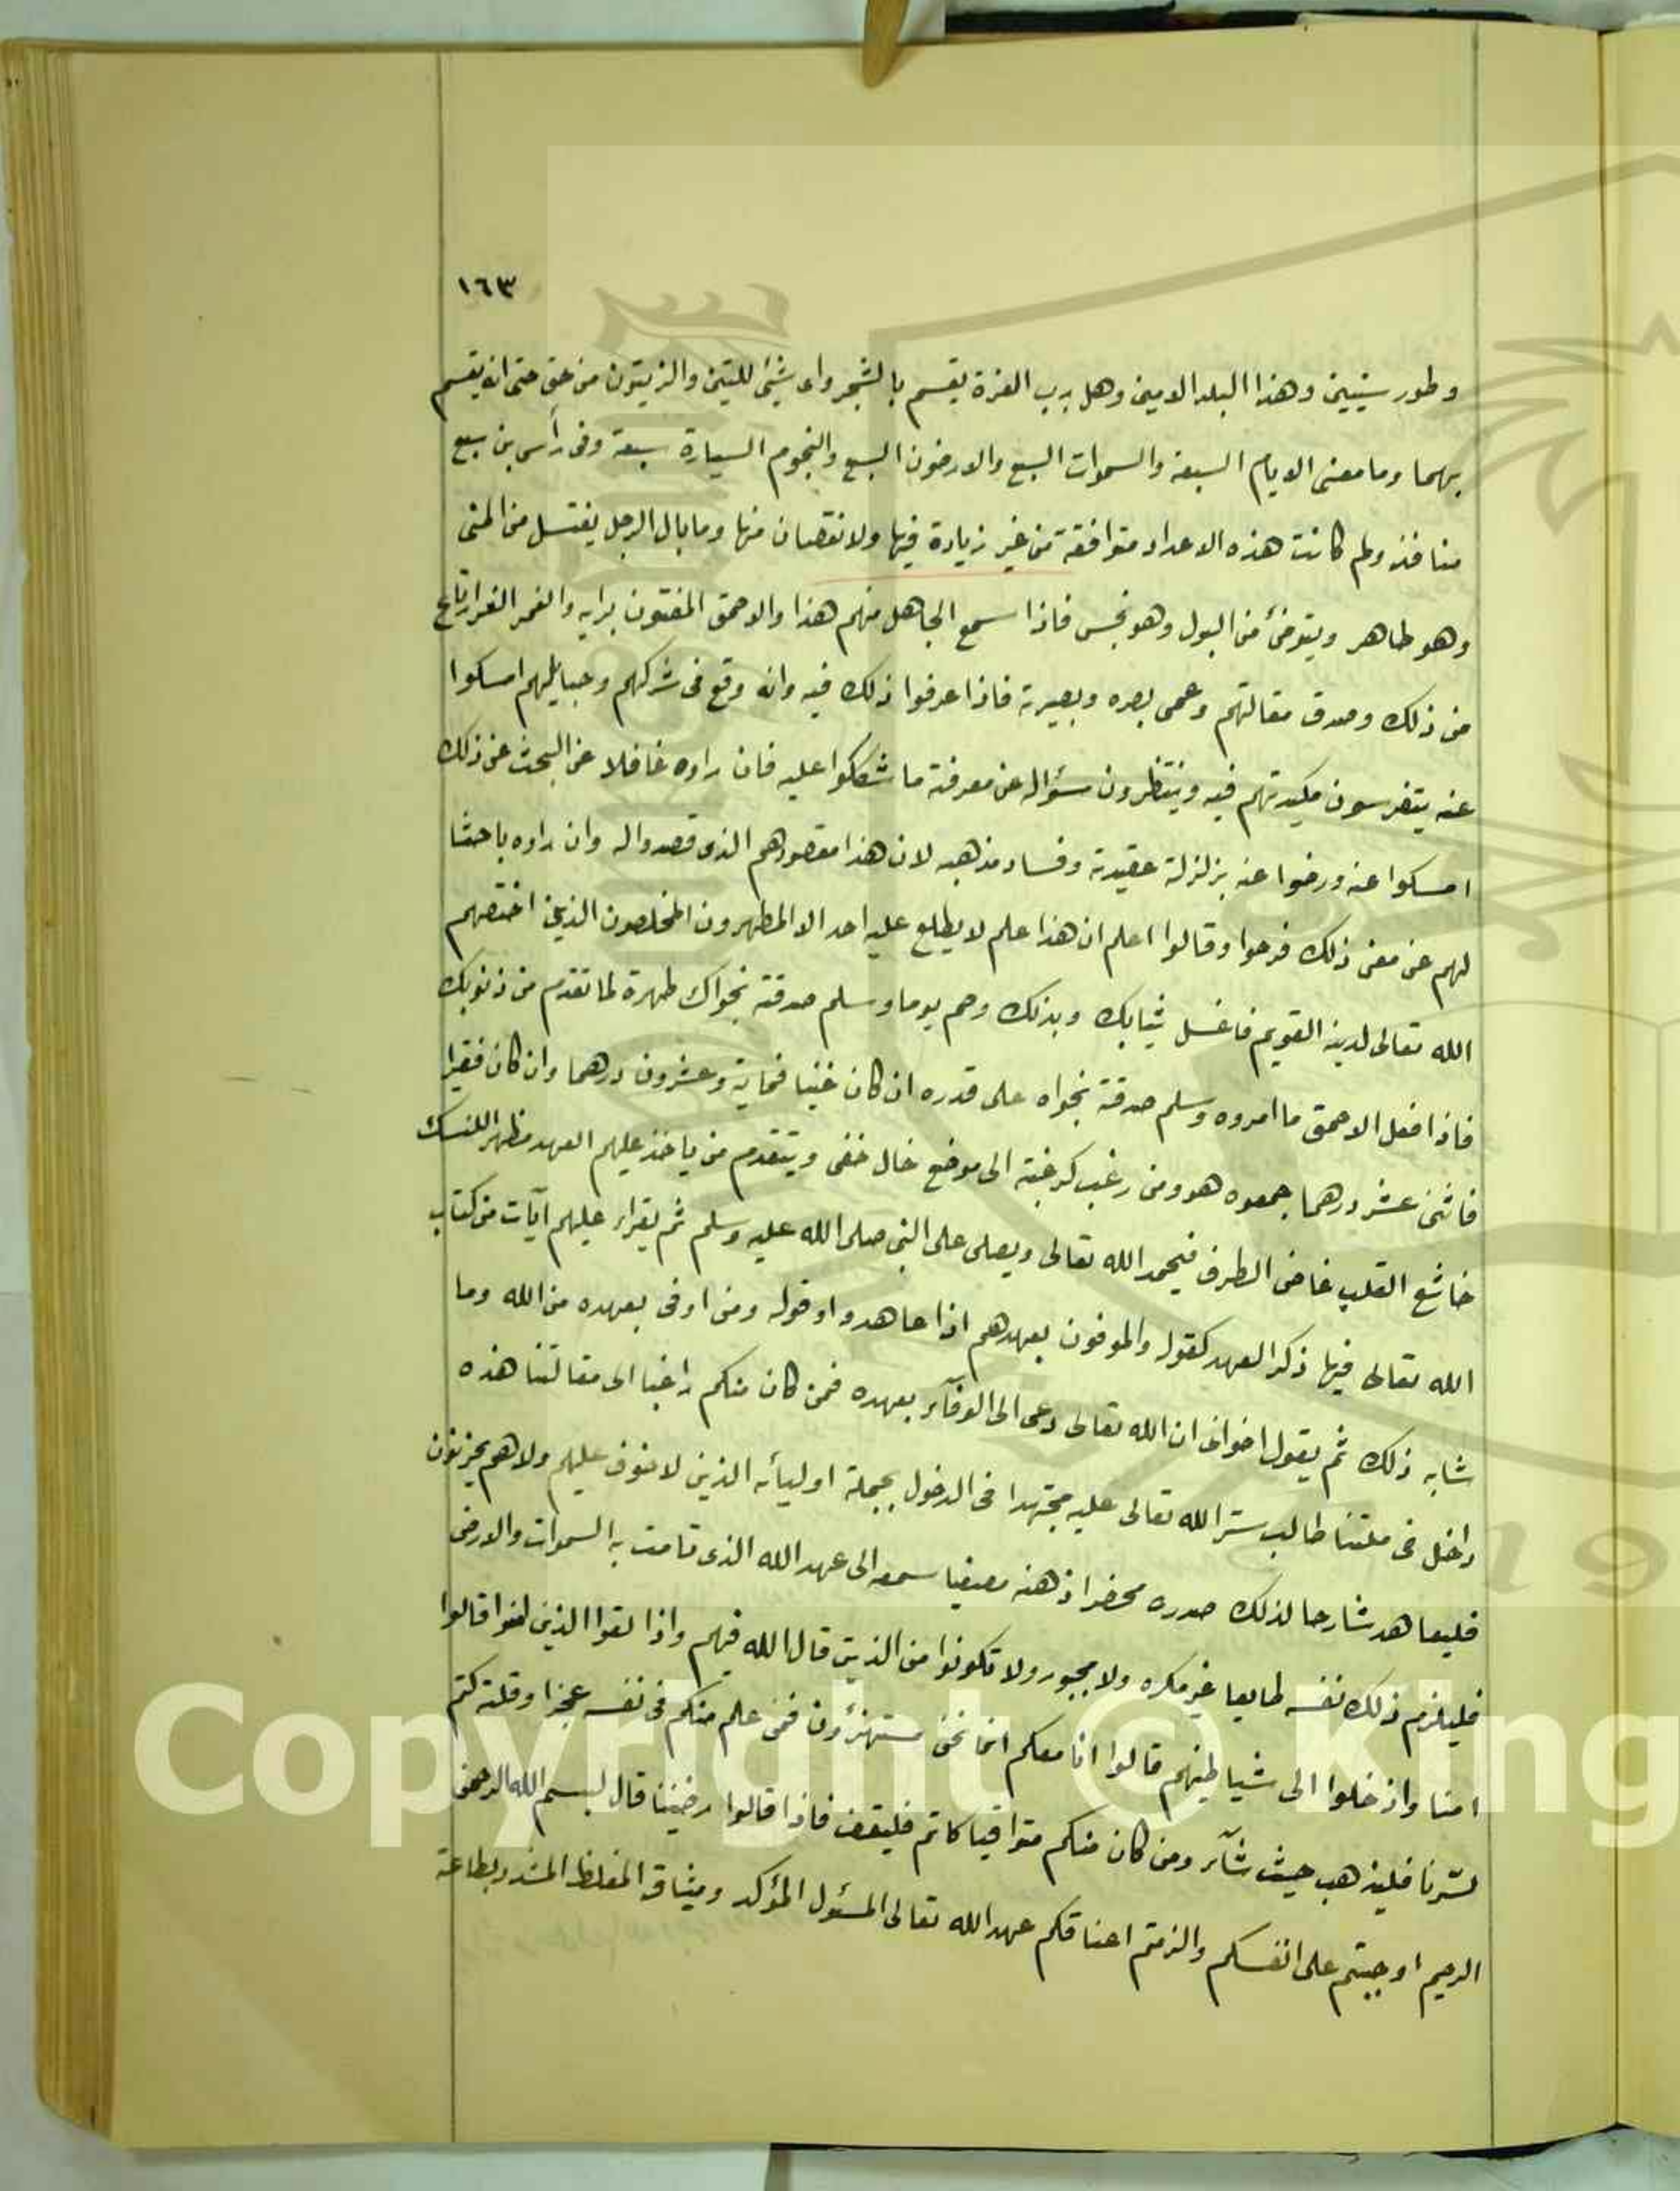 ١٦٣
وطور سينين وهذا البلد الامين وهل برب العزة يقسم بالشجر واى شيئ للتين والزيتون من حق حتى انه يقسم
بهما وما معنى الايام السبعة والسموات السبع والارضون السبع والنجوم السيارة سبعة وفى رأس بن سبع
منافذ ولم كانت هذه الاعداد متوافقة من غير زيادة فيها ولا نقصان منها وما بال الرجل يغتسل من المنى
وهو طاهر ويتوضئ من البول وهو نجس فاذا سمع الجاهل منهم هذا والاحمق المفتون برايه والغمر الغر ارتاع
من ذلك وصدق مقالتهم وعمى بصره وبصيرته فاذا عرفوا ذلك فيه وانه وقع فى شركهم وحبايلهم امسكوا
عنه يتفرسون مكيدتهم فيه وينتظرون سؤاله عن معرفة ما شككوا عليه فان راوه غافلا عن البحث عن ذلك
امسكوا عنه ورضوا عنه بزلزلة عقيدته وفساد مذهبه لان هذا مقصودهم الذى قصدوا له وان راوه باحثا
لهم عن معنى ذلك فرحوا وقالوا اعلم ان هذا علم لا يطلع عليه احد الا المطهرون المخلصون الذين اختصهم
الله تعالى لدينه القويم فاغسل ثيابك وبدنك وصم يوما وسلم صدقة نجواك طهرة لما تقدم من ذنوبك
فاذا فعل الاحمق ما امروه وسلم صدقة نجواه على قدره ان كان غنيا فماية وعشرون درهما وان كان فقيرا
فاثنى عشر درهما جمعوه هو ومن رغب كرغبته الى موضع خال خفى ويتقدم من ياخذ عليهم العهد مظهر النسك
خاشع القلب غاض الطرف فيحمد الله تعالى ويصلى على النبى صلى الله عليه وسلم ثم يقراء عليهم آيات من كتاب
الله تعالى فيها ذكر العهد كقوله والموفون بعهدهم اذا عاهدوا وقوله ومن اوفى بعهده من الله وما
شابه ذلك ثم يقول اخوانى ان الله تعالى دعى الى الوفآء بعهده فمن كان منكم راغبا الى مقالتنا هذه
داخل فى ملتنا طالب ستر الله تعالى عليه مجتهدا فى الدخول بجملة اوليائه الذين لا خوف عليهم ولا هم يحزنون
فليعاهد شارحا لذلك صدره محضرا ذهنه مصغيا سمعه الى عهد الله الذى قامت به السموات والارض
فليلزم ذلك نفسه طايعا غير مكره ولا مجبور ولا تكونوا من الذين قال الله فيهم واذا لقوا الذين امنوا قالوا
امنا واذ خلوا الى شياطينهم قالوا انا معكم انما نحن مستهزؤن فمن علم منكم فى نفسه عجزا وقلة كتم
لسّرنا فليذهب حيث شآء ومن كان منكم متواقيا كاتم فليقف فاذا قالوا رضينا قال بسم الله الرحمن
الرحيم اوجبتم على انفسكم والزمتم اعناقكم عهد الله تعالى المسئول المؤكد وميثاقه المغلظ المشدد بطاعة
Copyright © King